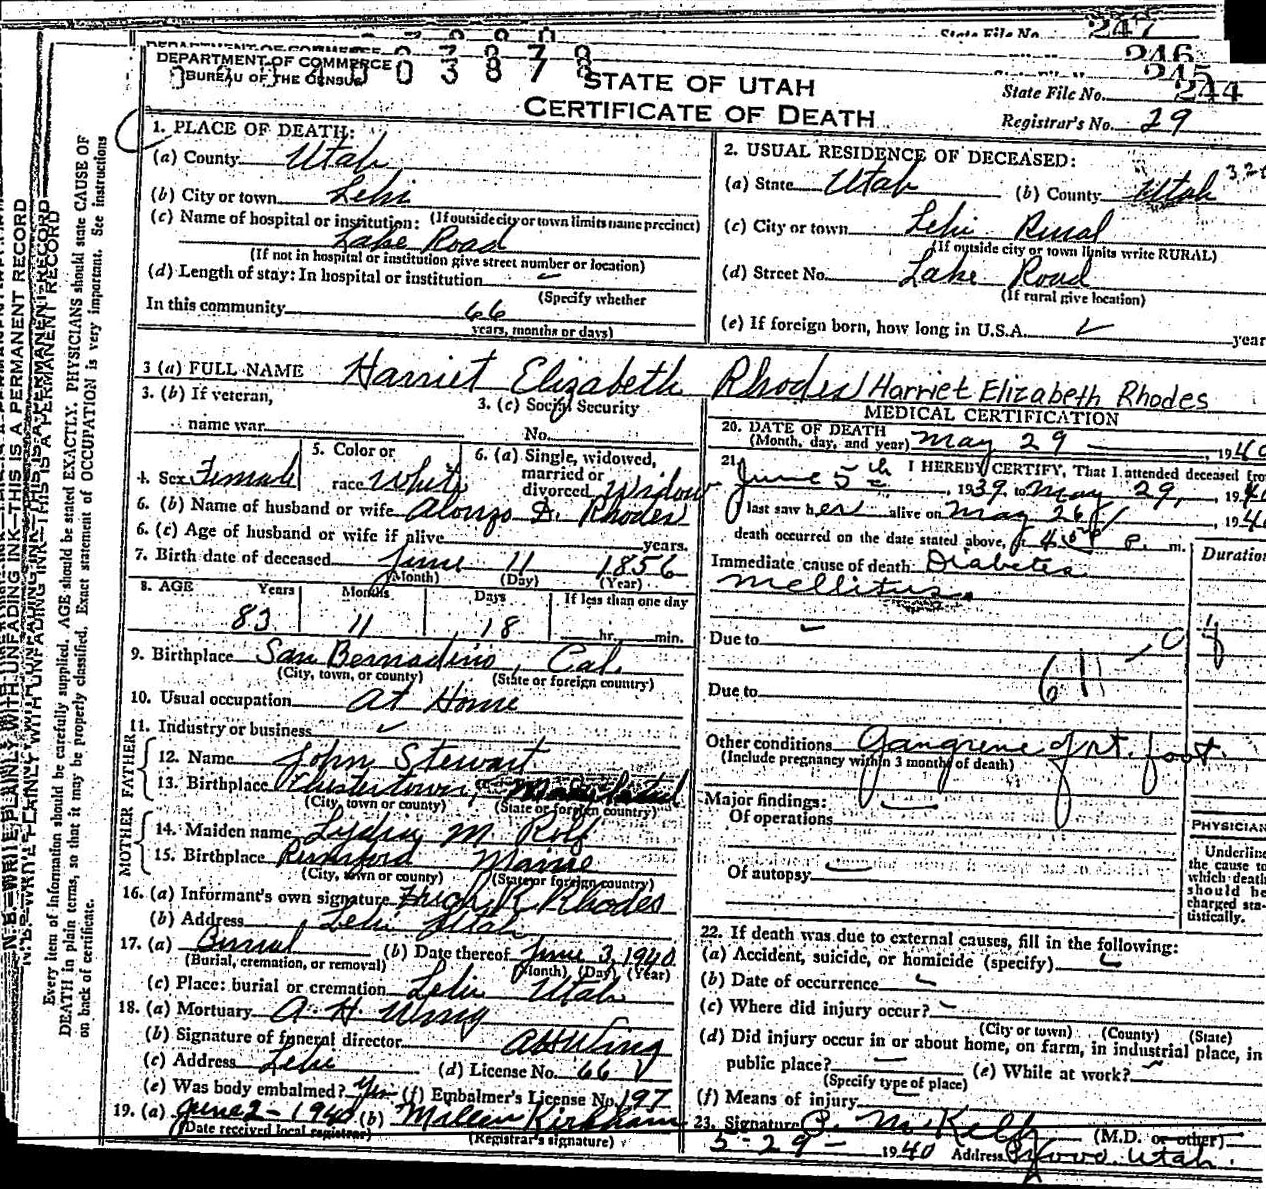 State File No. 247
246
245
DEPARTMENT OF COMMERCE
BUREAU OF THE CENSUS
STATE OF UTAH
CERTIFICATE OF DEATH
State File No. 244
Registrar's No. 29
1. PLACE OF DEATH:
(a) County Utah
(b) City or town Lehi
(If outside city or town limits name precinct)
(c) Name of hospital or institution:
Lake Road
(If not in hospital or institution give street number or location)
(d) Length of stay: In hospital or institution
(Specify whether
In this community 66
years, months or days)
2. USUAL RESIDENCE OF DECEASED:
(a) State Utah (b) County Utah
(c) City or town Lehi Rural
(If outside city or town limits write RURAL)
(d) Street No. Lake Road
(If rural give location)
(e) If foreign born, how long in U.S.A. year
3 (a) FULL NAME Harriet Elizabeth Rhodes / Harriet Elizabeth Rhodes
3. (b) If veteran,
name war
3. (c) Social Security
No.
4. Sex Female
5. Color or
race White
6. (a) Single, widowed,
married or
divorced Widow
6. (b) Name of husband or wife Alonzo D. Rhodes
6. (c) Age of husband or wife if alive years.
7. Birth date of deceased June 11 1856
(Month) (Day) (Year)
8. AGE Years Months Days If less than one day
83 11 18 hr. min.
9. Birthplace San Bernadino, Cal.
(City, town, or county) (State or foreign country)
10. Usual occupation At Home
11. Industry or business
FATHER
12. Name John Stewart
13. Birthplace
(City, town or county) (State or foreign country)
MOTHER
14. Maiden name Lydia M. Rolf
15. Birthplace Rumford Maine
(City, town or county) (State or foreign country)
16. (a) Informant's own signature Rhodes
(b) Address Lehi Utah
17. (a) Burial (b) Date thereof June 3, 1940
(Burial, cremation, or removal) (Month) (Day) (Year)
(c) Place: burial or cremation Lehi Utah
18. (a) Mortuary A. H. Wing
(b) Signature of funeral director A H Wing
(c) Address Lehi (d) License No. 66
(e) Was body embalmed? Yes (f) Embalmer's License No. 197
19. (a) June 2 - 1940 (b) Kirkham
(Date received local registrar) (Registrar's signature)
MEDICAL CERTIFICATION
20. DATE OF DEATH
(Month, day, and year) May 29 , 1940
21. I HEREBY CERTIFY, That I attended deceased from
June 5th , 1939, to May 29, , 1940
I last saw her alive on May 26 , 1940
death occurred on the date stated above, at P. m.
Duration
Immediate cause of death Diabetes
mellitus
Due to
61
Due to
Other conditions Gangrene of rt. foot.
(Include pregnancy within 3 months of death)
Major findings:
Of operations
Of autopsy
PHYSICIAN
Underline
the cause to
which death
should be
charged sta-
tistically.
22. If death was due to external causes, fill in the following:
(a) Accident, suicide, or homicide (specify)
(b) Date of occurrence
(c) Where did injury occur?
(City or town) (County) (State)
(d) Did injury occur in or about home, on farm, in industrial place, in
public place? (e) While at work?
(Specify type of place)
(f) Means of injury
23. Signature (M.D. or other)
5-29- 1940 Address Utah.
N. B.—WRITE PLAINLY, WITH UNFADING INK—THIS IS A PERMANENT RECORD
Every item of information should be carefully supplied. AGE should be stated EXACTLY. PHYSICIANS should state CAUSE OF
DEATH in plain terms, so that it may be properly classified. Exact statement of OCCUPATION is very important. See instructions
on back of certificate.